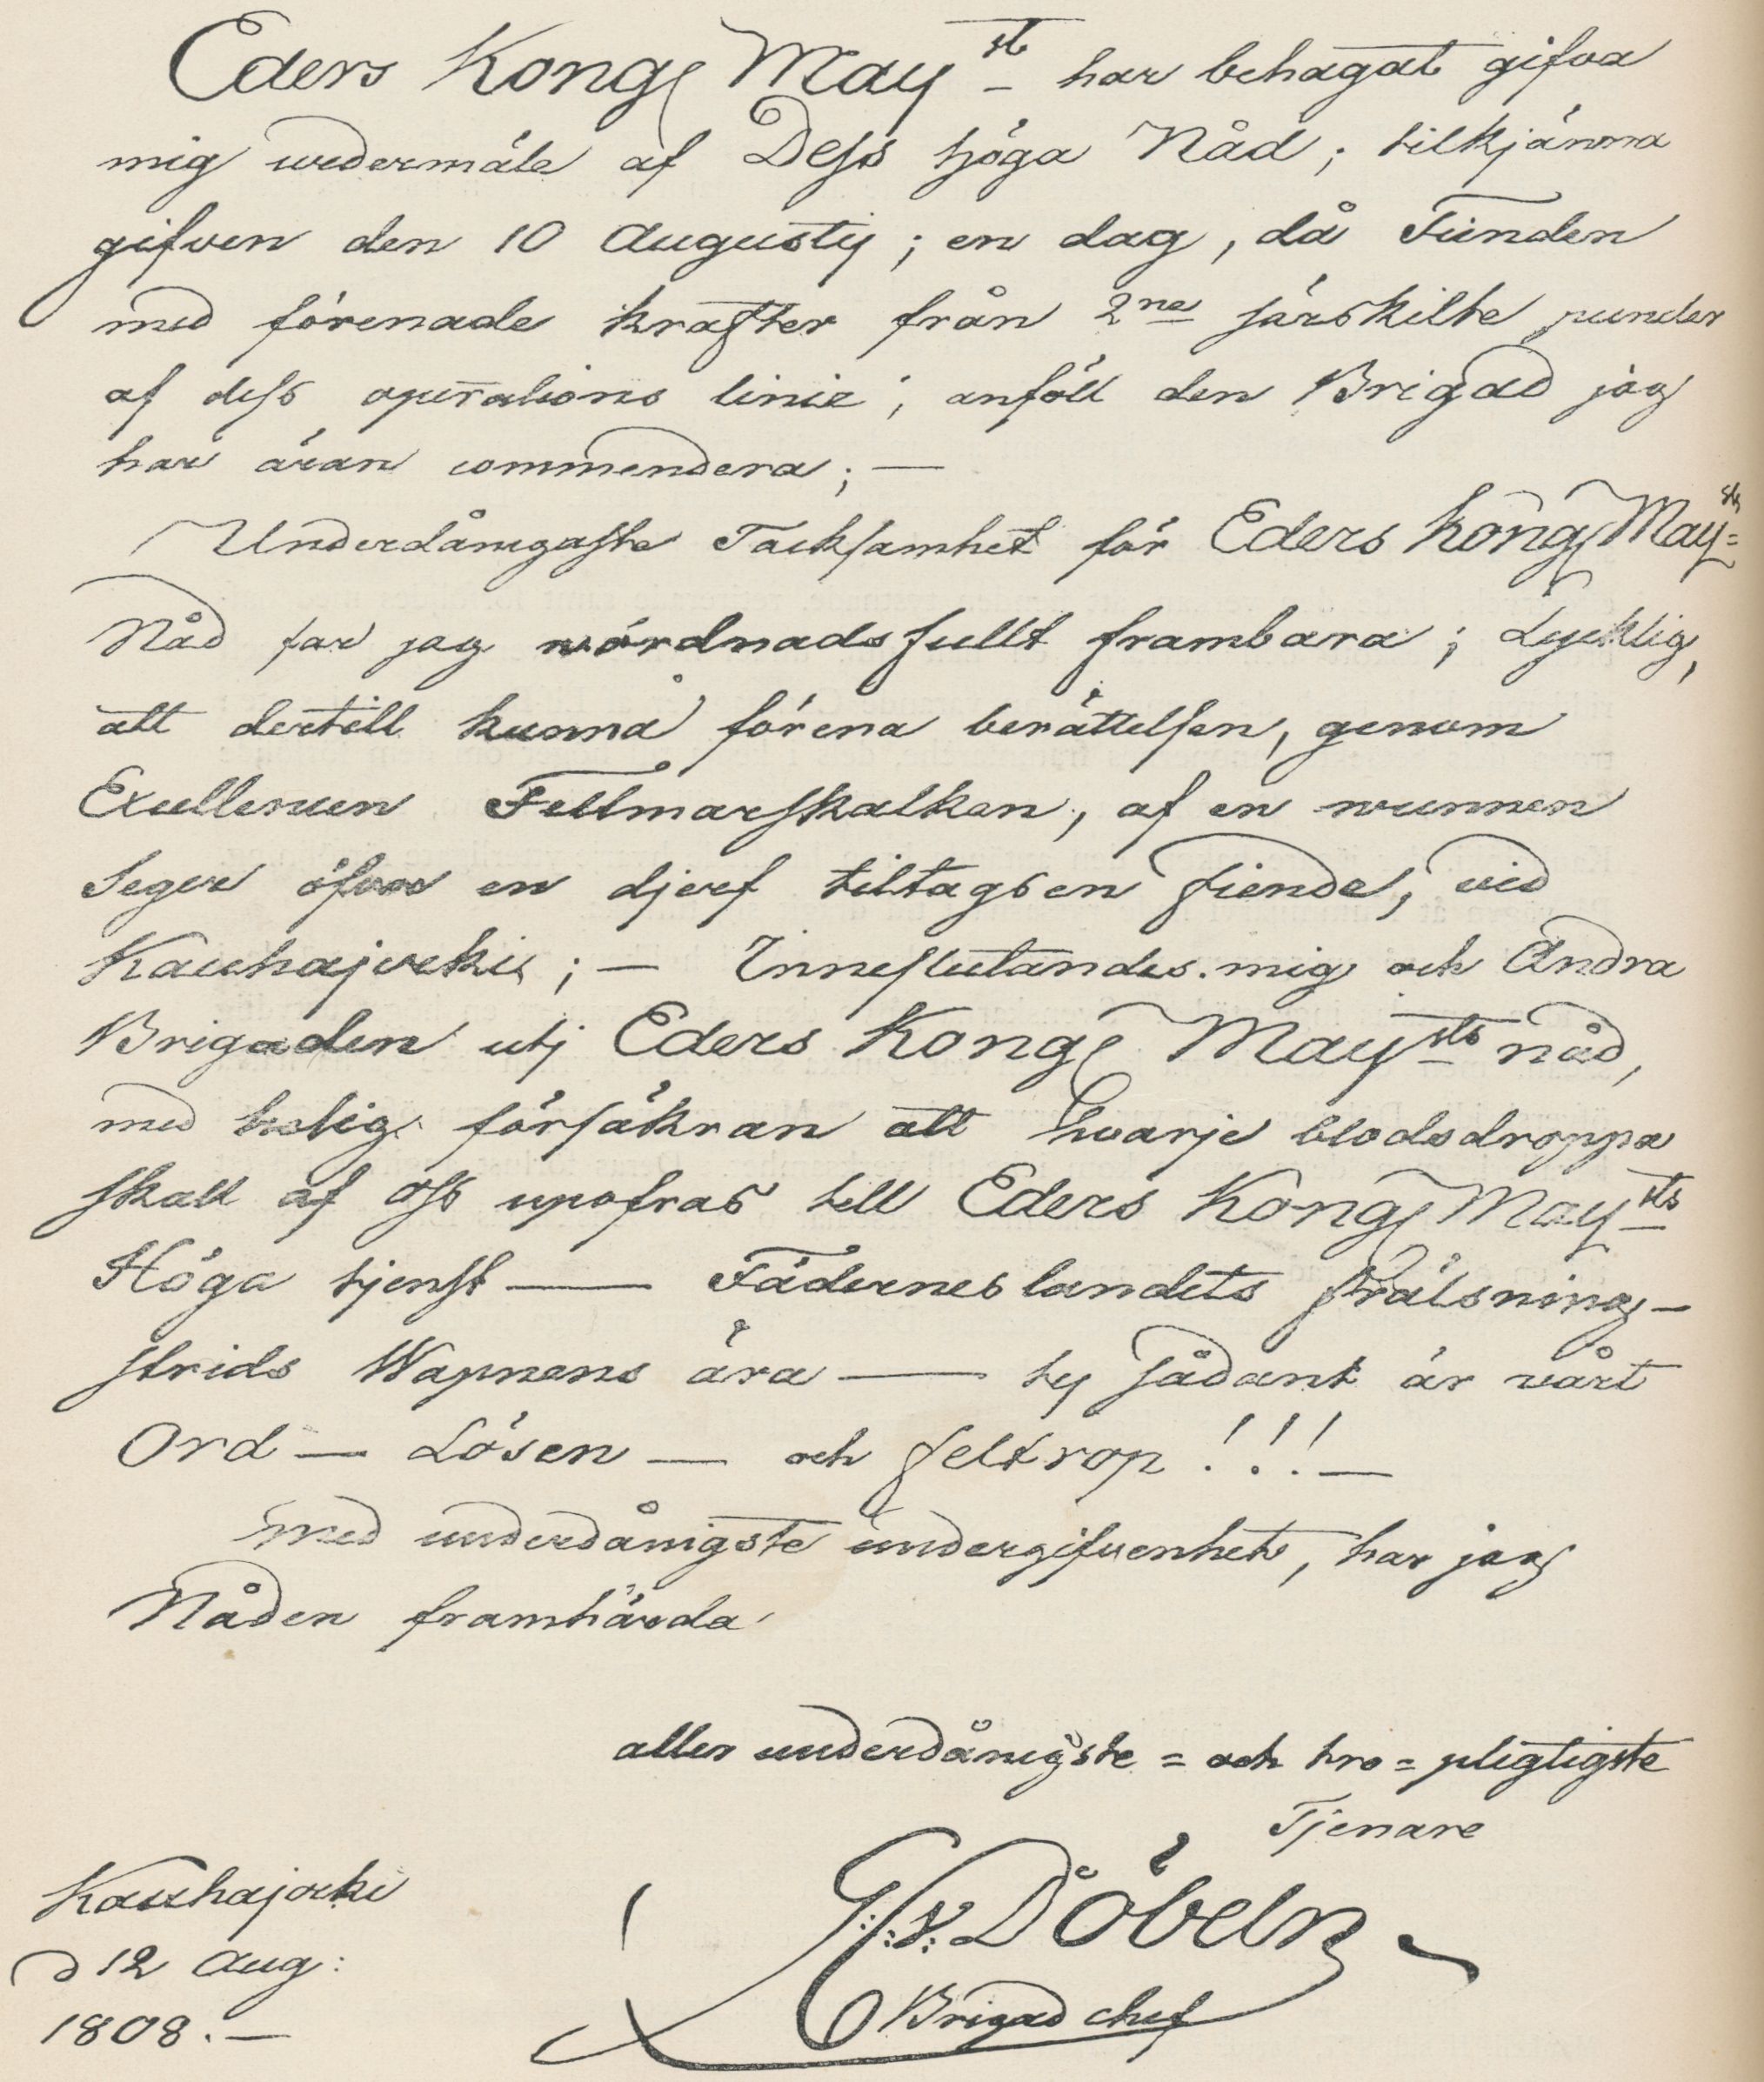 Eders Kongl May:st har behagat gifva
mig wedermäle af Dess höga Nåd; tilkjänna
gifven den 10 Augustij; en dag, då Fienden
med förenade krafter från 2ne särskilte punder
af dess operations linie; anföll den Brigad jag
har äran commendera; —
Underdånigaste Tacksamhet för Eders Kongl May:sts
Nåd far jag wördnadsfullt frambära; Lycklig,
att dertill kunna förena berättelsen, genom
Excellencen Feltmarskalken, af en wunnen
Seger öfver en djerf tiltagsen fiende, vid
Kauhajockij; — Inneslutandes mig och Andra
Brigaden utj Eders Kongl May:sts nåd,
med helig försäkran att hvarje blodsdroppa
skall af oss upofras till Eders Kongl May:sts
Höga tjenst — Fäderneslandets frälsning —
strids Wapnens ära — ty sådant är vårt
Ord — Lösen — och feltrop!!! —
Med underdånigste undergifvenhet, har jag
Nåden framhärda
aller underdånigste = och tro = pligtigste
Tjenare
G: v: Döbeln
Brigad chef
Kauhajocki
d 12 Aug:
1808. —